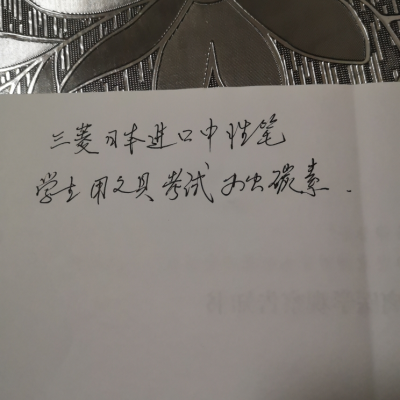 三菱日本进口中性笔
学生用文具考试 碳素.